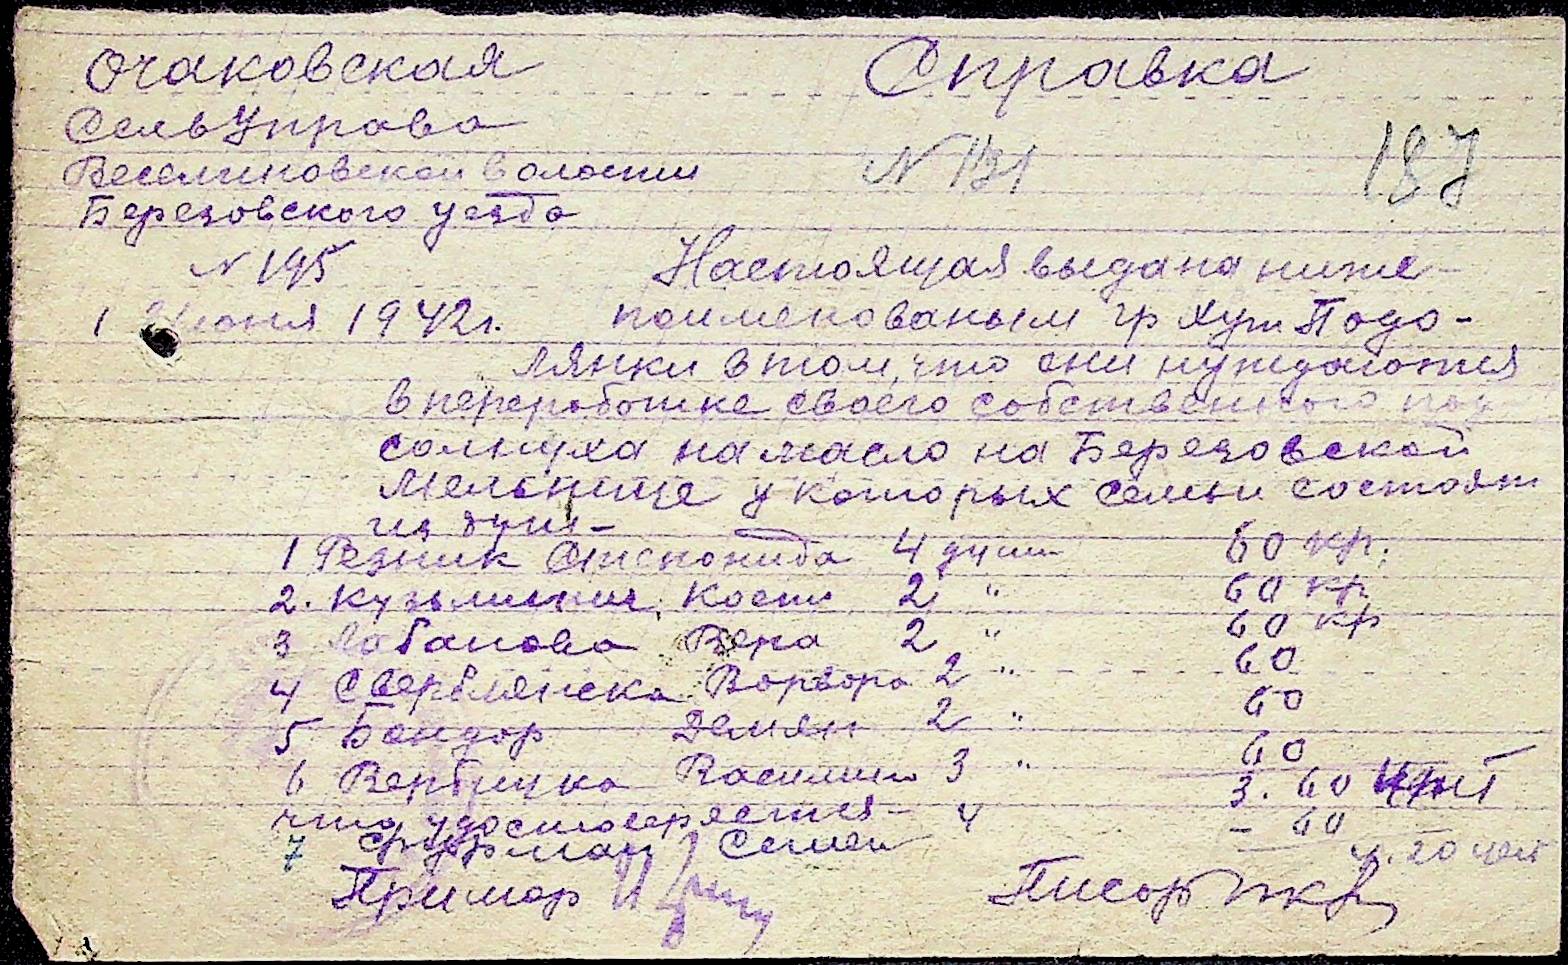 Очаковская
СельУправа
Веселиновской волости
Березовского уезда
N 195
1 Июня 1942г.
Справка
N 1131
187
Настоящая выдана ниже-
поименованым гр хут Подо-
лянки в том, что они нуждаются
в переработке своего собственного под
солнуха на масло на Березовской
Мельнице у которых семьи состоят
из душ-
1 Резник Степонида 4 души 60 кр.
2. Кузьминич Кости 2 " 60 кр
3 Лобанова Вера 2 " 60 кр
4 Свербиянска Ворвара 2 " 60
5 Бондор Демян 2 " 60
6 Вербицка Василина 3 " 60
3. 60
что удостоверяется-
7 Фурман Семен 4 - 60
4. 20
Примар
Писор